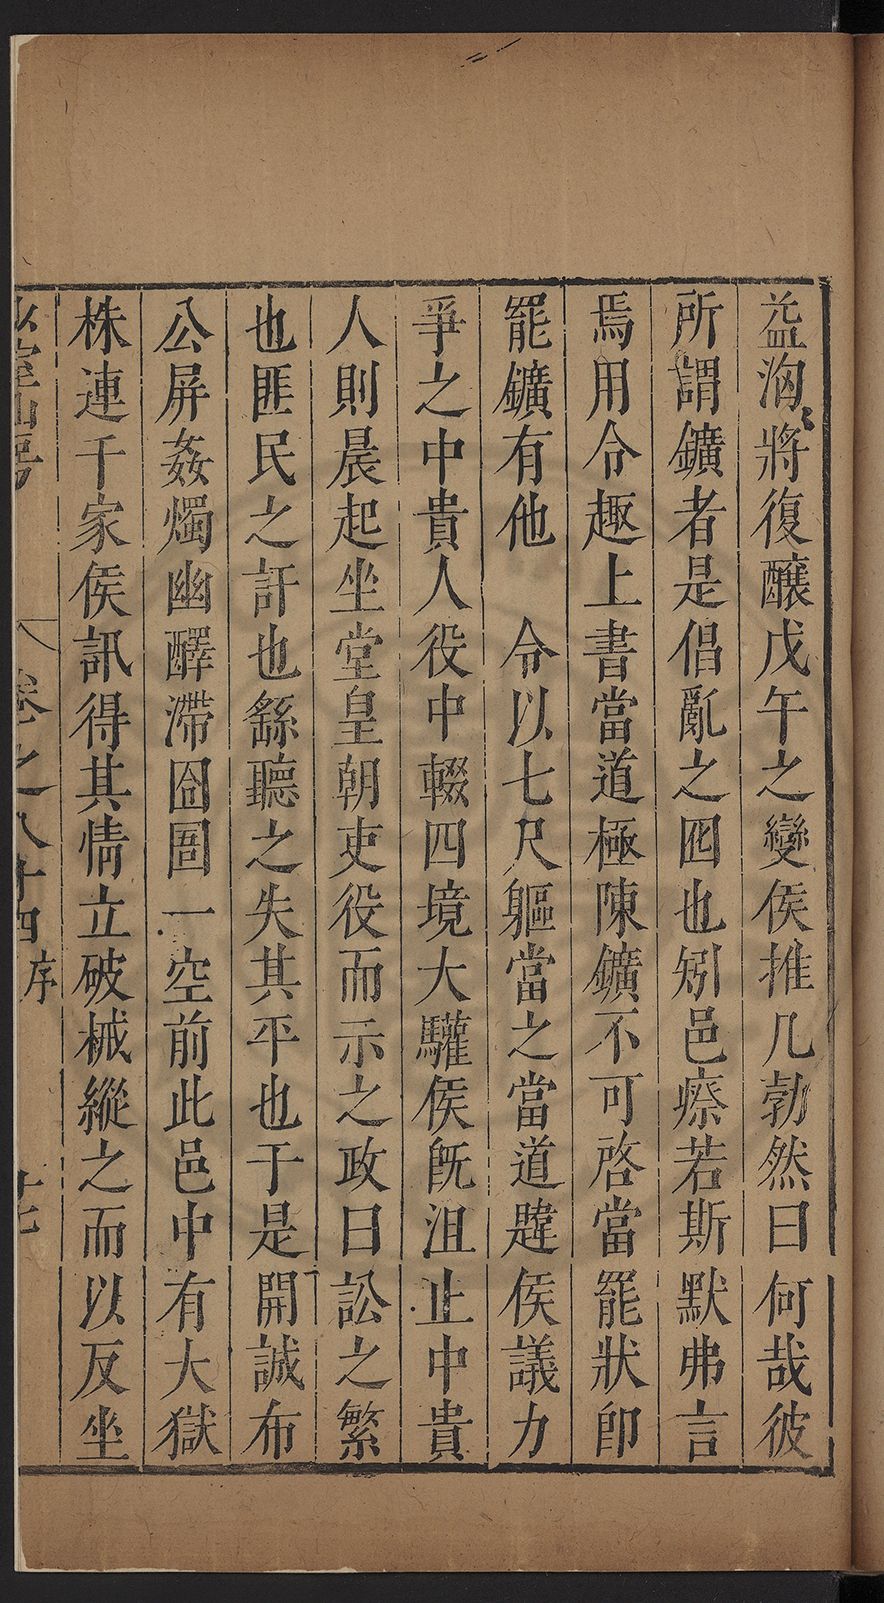 益洶將復釀戊午之變侯推几勃然曰何哉彼
所謂鑛者是倡亂之囮也矧邑瘵若斯默弗言
焉用令趣上書當道極陳鑛不可啓當罷狀即
罷鑛有他　令以七尺軀當之當道韙侯議力
爭之中貴人役中輟四境大驩侯旣沮止中貴
人則晨起坐堂皇朝吏役而示之政曰訟之繁
也匪民之訐也繇聽之失其平也于是開誠布
公屏姦燭幽釋滯囹圄一空前此邑中有大獄
株連千家侯訊得其情立破械縱之而以反坐
少室山房　卷之八十四　序　十七